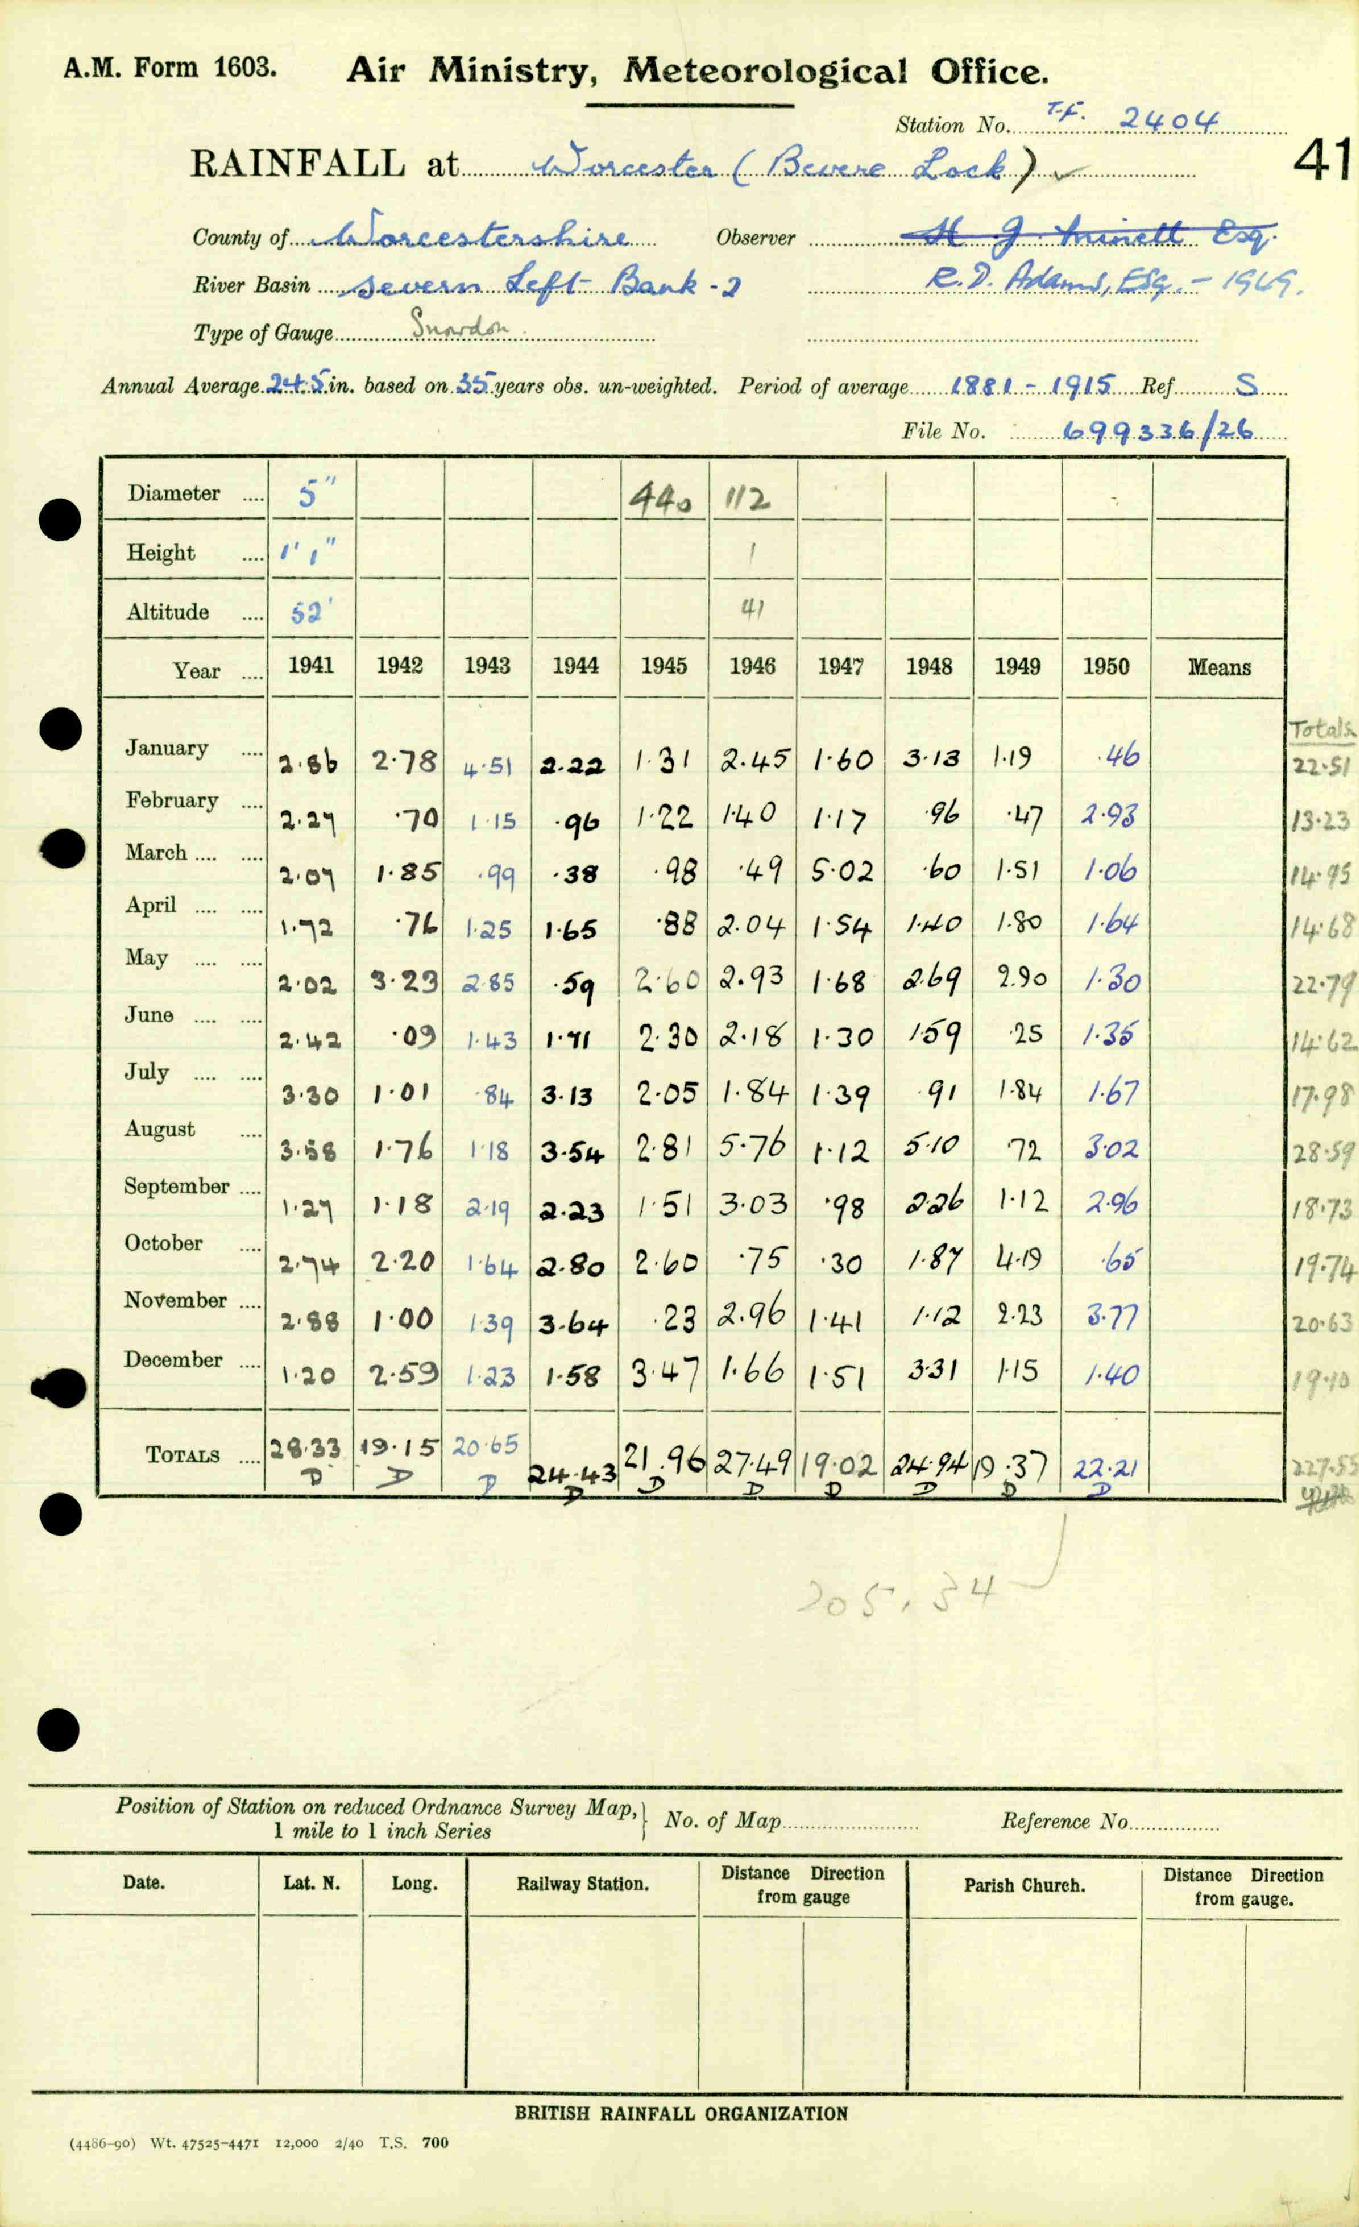 A.M. Form 1603. Air Ministry, Meteorological Office.
Station No. T.F. 2404
RAINFALL at Worcester (Bevere Lock) ✓ 41
County of Worcestershire Observer H J Minett Esq.
River Basin Severn Left Bank - 2 R.D. Adams, Esq. - 1949.
Type of Gauge Snowdon.
Annual Average 24.5 in. based on 35 years obs. un-weighted. Period of average 1881 - 1915 Ref S
File No. 699336/26
Diameter .... 5" 440 112
Height .... 1' 1" 1
Altitude .... 52' 41
Year .... 1941 1942 1943 1944 1945 1946 1947 1948 1949 1950 Means
Totals
January .... 2.86 2.78 4.51 2.22 1.31 2.45 1.60 3.13 1.19 .46 22.51
February .... 2.27 .70 1.15 .96 1.22 1.40 1.17 .96 .47 2.93 13.23
March .... .... 2.07 1.85 .99 .38 .98 .49 5.02 .60 1.51 1.06 14.95
April .... .... 1.72 .76 1.25 1.65 .88 2.04 1.54 1.40 1.80 1.64 14.68
May .... .... 2.02 3.23 2.85 .59 2.60 2.93 1.68 2.69 2.90 1.30 22.79
June .... .... 2.42 .09 1.43 1.71 2.30 2.18 1.30 1.59 .25 1.35 14.62
July .... .... 3.30 1.01 .84 3.13 2.05 1.84 1.39 .91 1.84 1.67 17.98
August .... 3.58 1.76 1.18 3.54 2.81 5.76 1.12 5.10 .72 3.02 28.59
September .... 1.27 1.18 2.19 2.23 1.51 3.03 .98 2.26 1.12 2.96 18.73
October .... 2.74 2.20 1.64 2.80 2.60 .75 .30 1.87 4.19 .65 19.74
November .... 2.88 1.00 1.39 3.64 .23 2.96 1.41 1.12 2.23 3.77 20.63
December .... 1.20 2.59 1.23 1.58 3.47 1.66 1.51 3.31 1.15 1.40 19.10
TOTALS .... 28.33 19.15 20.65 24.43 21.96 27.49 19.02 24.94 19.37 22.21 227.55
D D D D D D D D D D
205.34
Position of Station on reduced Ordnance Survey Map, 1 mile to 1 inch Series } No. of Map Reference No.
Date. Lat. N. Long. Railway Station. Distance Direction from gauge Parish Church. Distance Direction from gauge.
BRITISH RAINFALL ORGANIZATION
(4486-90) Wt. 47525-4471 12,000 2/40 T.S. 700